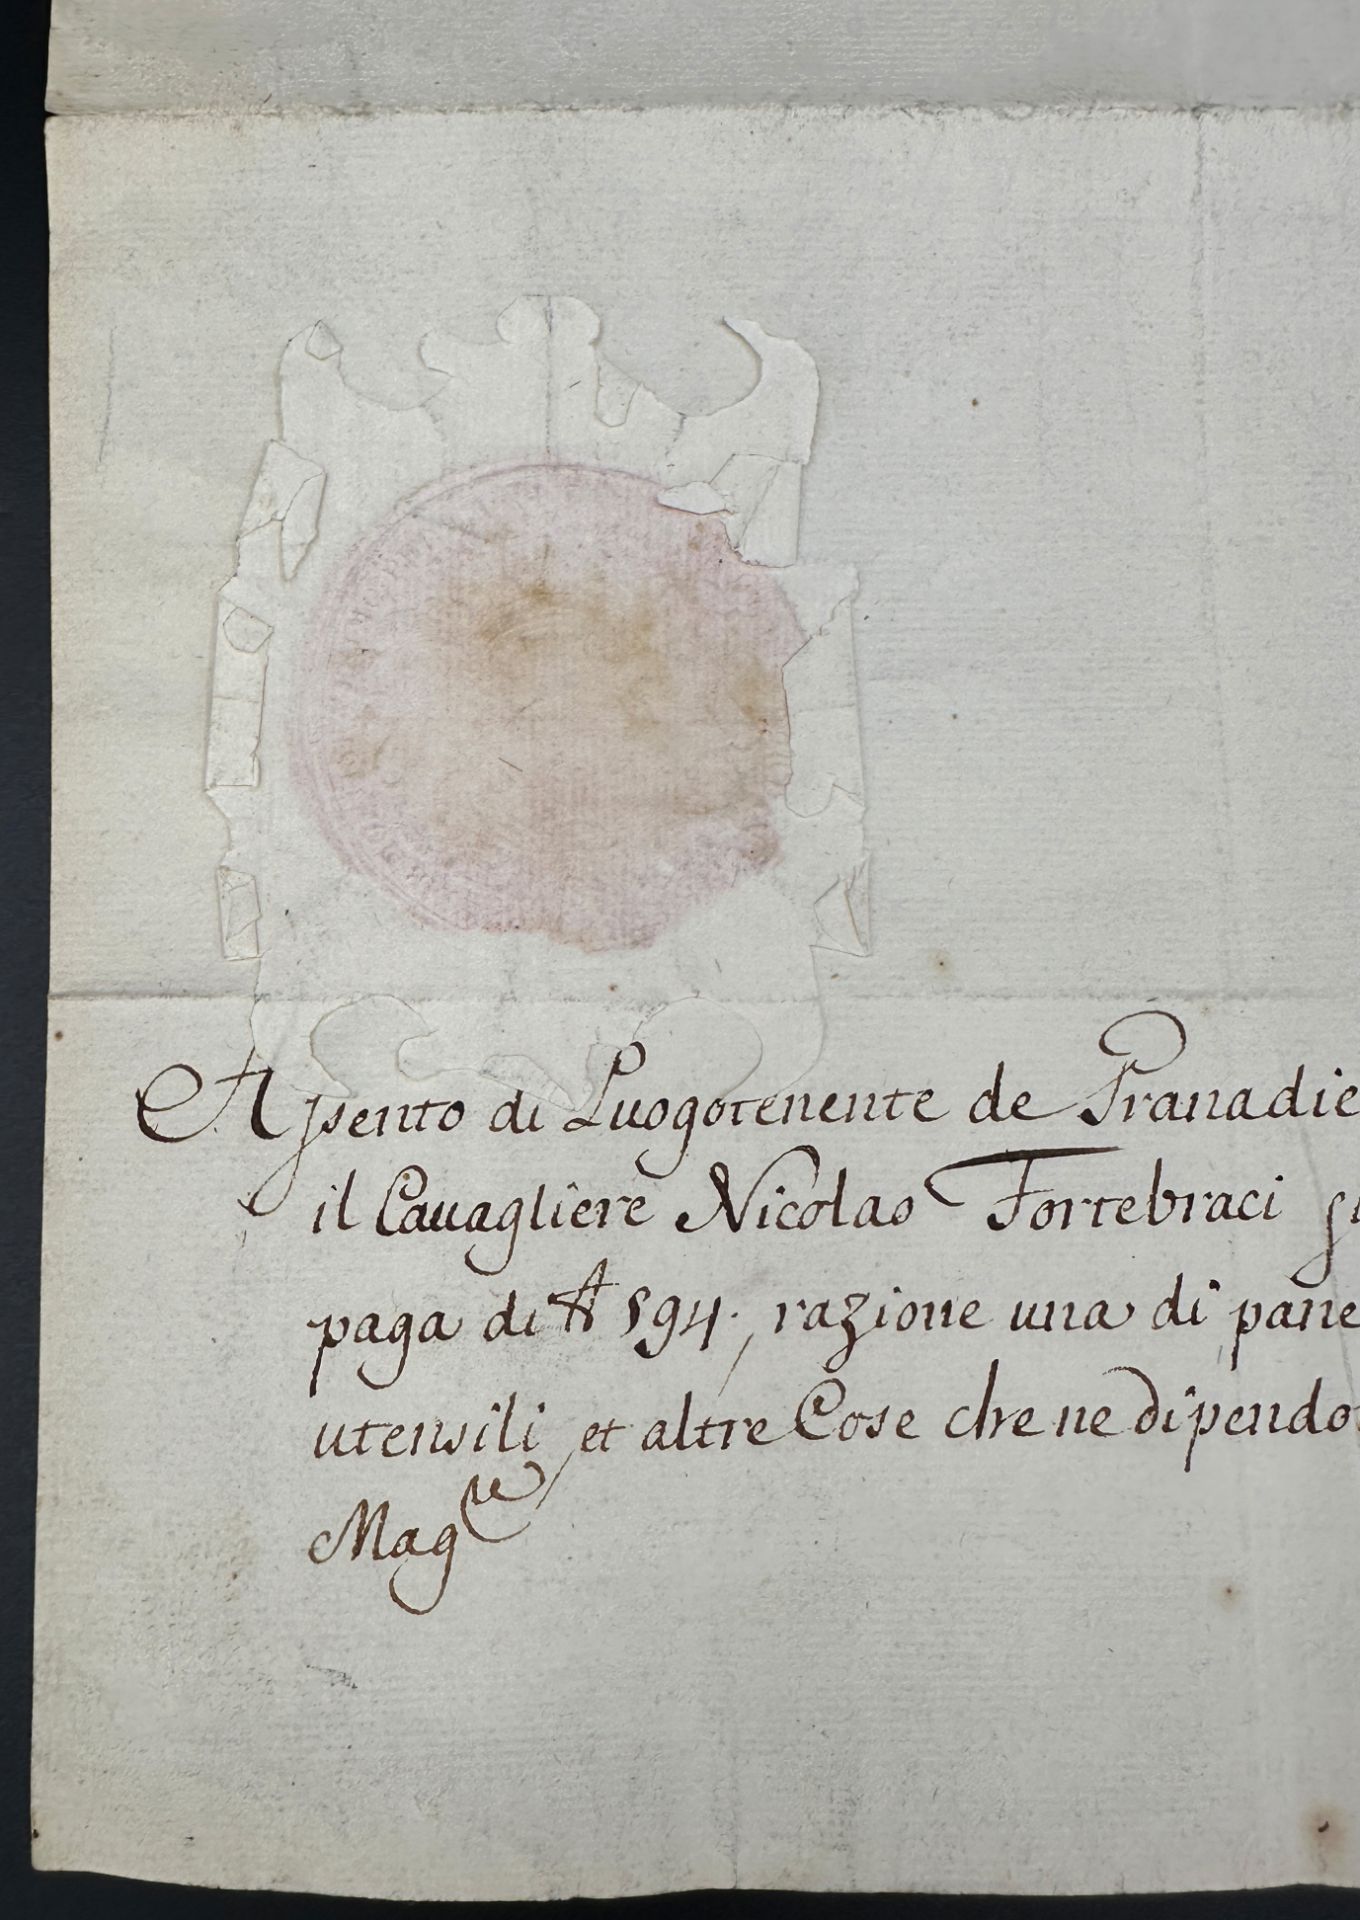 Assento di Luogotenente de Granadie
il Cauagliere Nicolao Fortebraci
paga di 594., razione una di pane
utensili, et altre Cose che ne dipendo
Mag.re